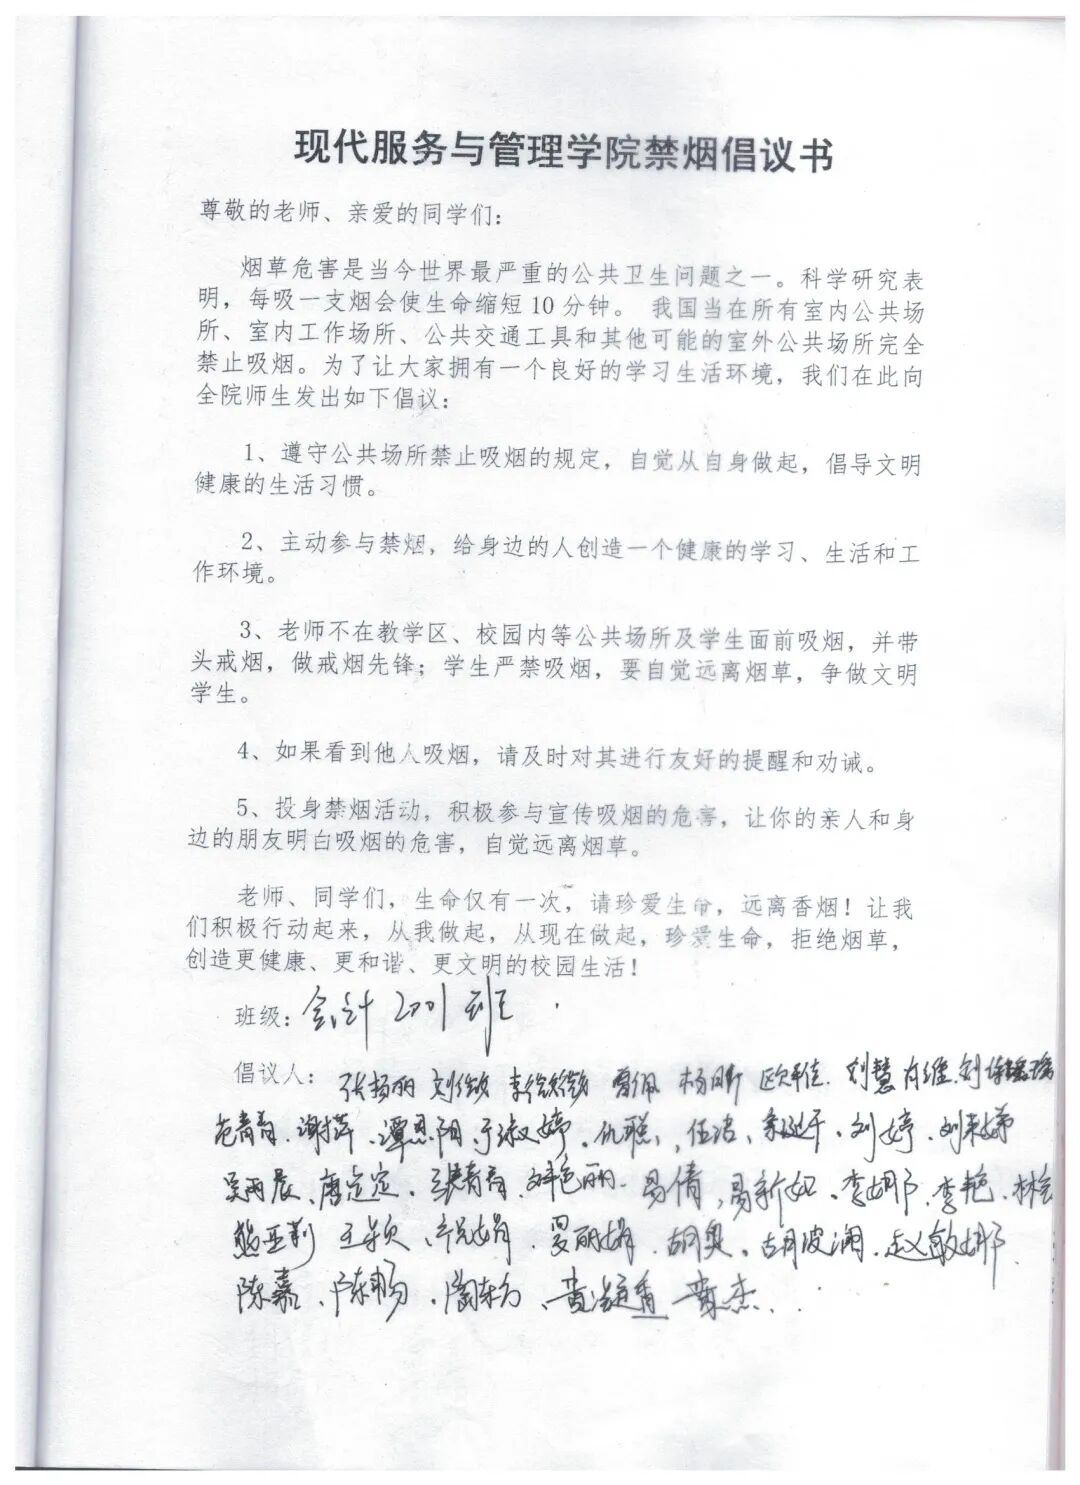 现代服务与管理学院禁烟倡议书
尊敬的老师、亲爱的同学们：
烟草危害是当今世界最严重的公共卫生问题之一。科学研究表
明，每吸一支烟会使生命缩短10分钟。 我国当在所有室内公共场
所、室内工作场所、公共交通工具和其他可能的室外公共场所完全
禁止吸烟。为了让大家拥有一个良好的学习生活环境，我们在此向
全院师生发出如下倡议：
1、遵守公共场所禁止吸烟的规定，自觉从自身做起，倡导文明
健康的生活习惯。
2、主动参与禁烟，给身边的人创造一个健康的学习、生活和工
作环境。
3、老师不在教学区、校园内等公共场所及学生面前吸烟，并带
头戒烟，做戒烟先锋；学生严禁吸烟，要自觉远离烟草，争做文明
学生。
4、如果看到他人吸烟，请及时对其进行友好的提醒和劝诫。
5、投身禁烟活动，积极参与宣传吸烟的危害，让你的亲人和身
边的朋友明白吸烟的危害，自觉远离烟草。
老师、同学们，生命仅有一次，请珍爱生命，远离香烟！让我
们积极行动起来，从我做起，从现在做起，珍爱生命，拒绝烟草，
创造更健康、更和谐、更文明的校园生活！
班级：会计2001班
倡议人：张扬丽 刘微 李微微 杨昕 欧佳 刘慧 肖维
范青青、谢萍、谭思阳、于淑婷、仇聪、伍洁、刘婷、
吴雨晨、唐定定、张青青、易倩、易新如、李娜、李艳、
熊亚莉 王颖、晏丽娟、胡奥、胡波澜、赵敏娜
陈嘉、陈畅、黄凝香 杰